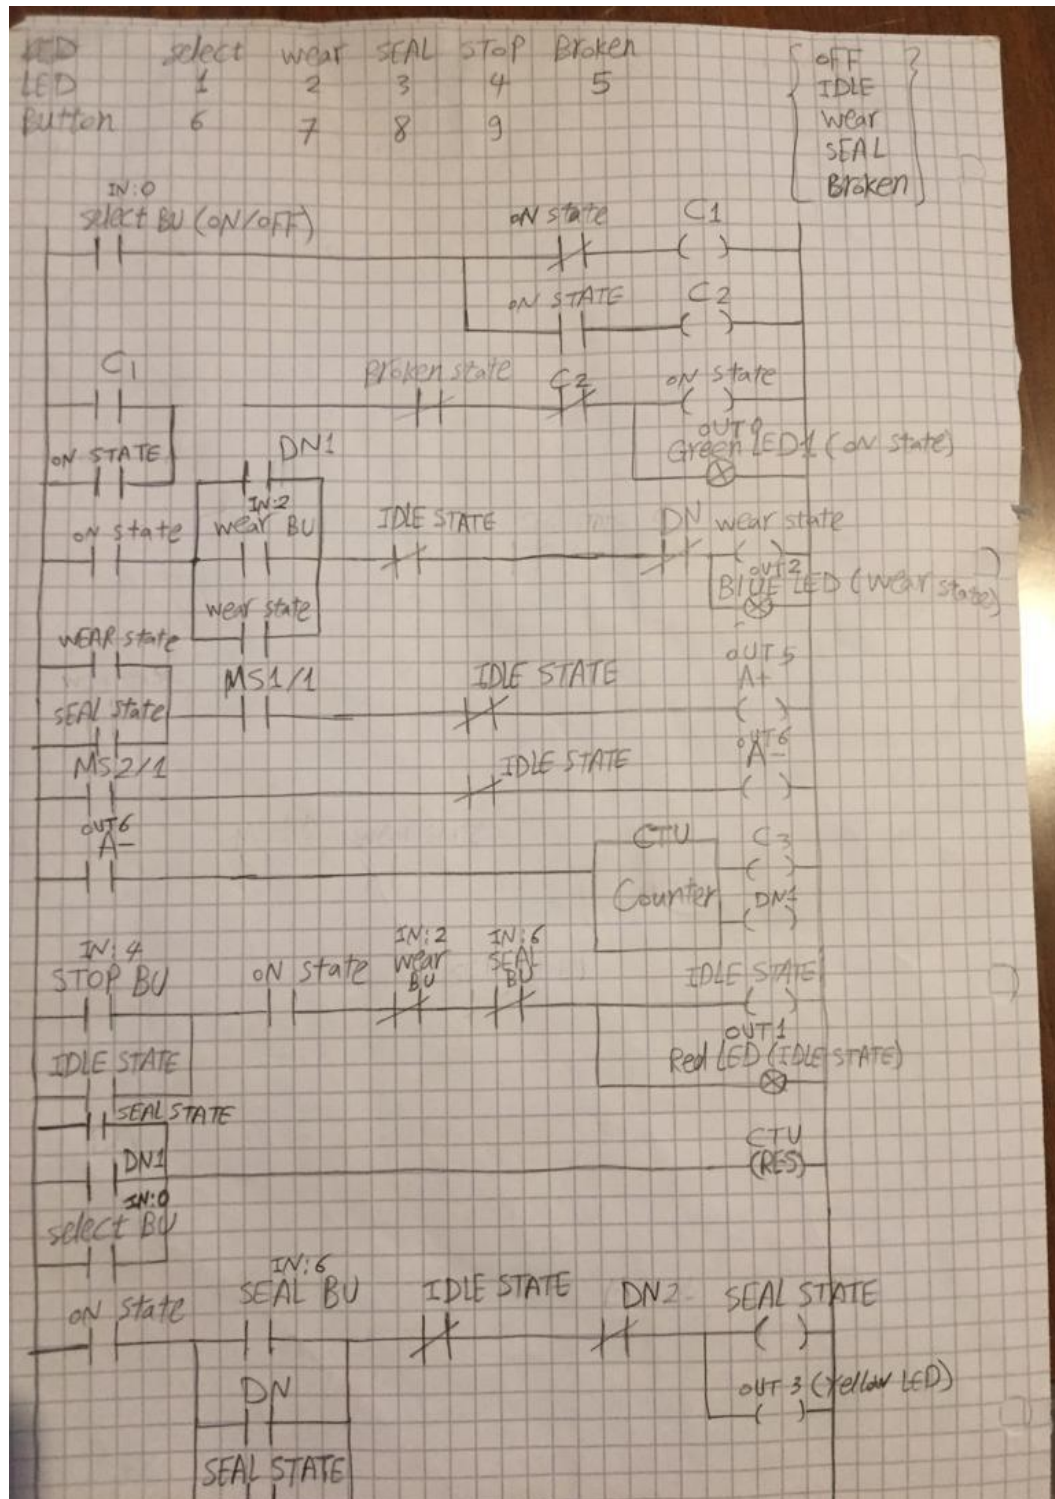 LED select wear SEAL STOP Broken
LED 1 2 3 4 5
Button 6 7 8 9
OFF
IDLE
wear
SEAL
Broken
IN:0
select BU (ON/OFF)
ON state
C1
ON STATE
C2
C1
Broken state
C2
ON state
OUT 0
Green LED1 (ON state)
ON STATE
DN1
ON state
IN:2
wear BU
IDLE STATE
DN
wear state
OUT 2
BLUE LED (wear state)
wear state
WEAR state
MS1/1
IDLE STATE
OUT 5
A+
SEAL state
MS2/1
IDLE STATE
OUT6
A-
OUT6
A-
CTU
Counter
C3
DN1
IN:4
STOP BU
ON state
IN:2
wear
BU
IN:6
SEAL
BU
IDLE STATE
OUT 1
Red LED (IDLE STATE)
IDLE STATE
SEAL STATE
DN1
CTU
(RES)
IN:0
select BU
ON state
IN:6
SEAL BU
IDLE STATE
DN2
SEAL STATE
DN
OUT 3 (Yellow LED)
SEAL STATE